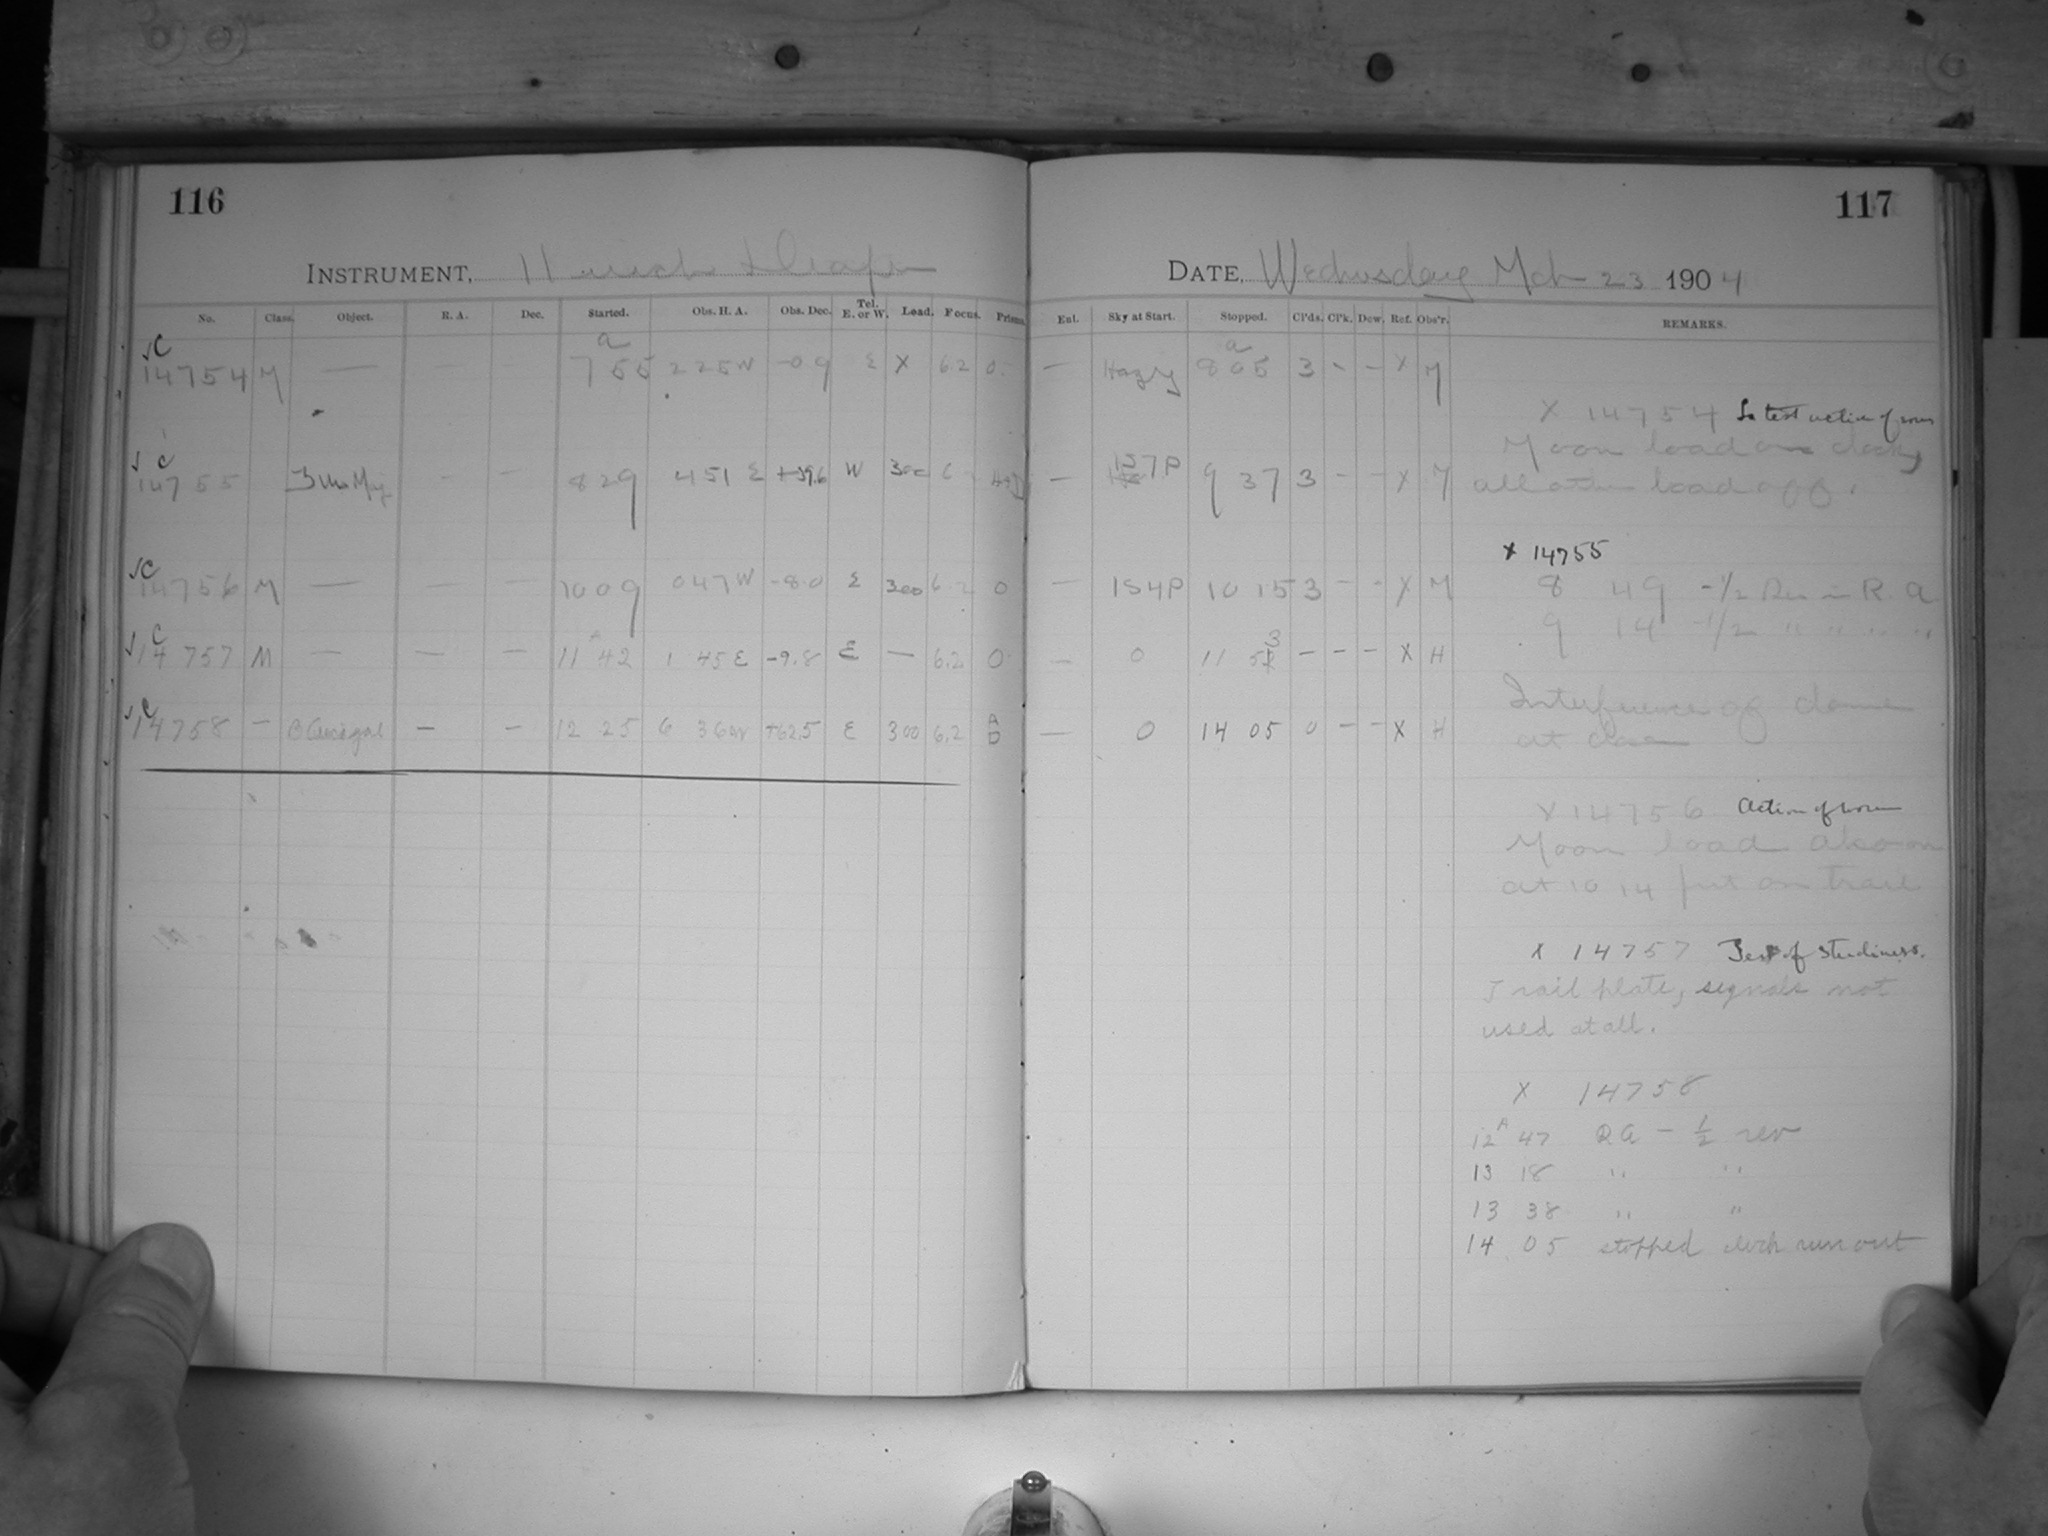 116
INSTRUMENT, 11 inch Draper
No. Class. Object. R. A. Dec. Started. Obs. H. A. Obs. Dec. Tel. E. or W. Load. Focus. Prisms
√C 14754 M — — — a 7 55 2 25 W -0 9 E X 6.2 0
√C 14755 — — 8 29 4 51 E +59.6 W 300 6
√C 14756 M — — — 10 09 0 47 W -8.0 E 300 6.2 0
√C 14757 M — — — A 11 42 1 45 E -9.8 E — 6.2 0
√C 14758 — — — 12 25 6 36 W +62.5 E 300 6.2 A D
117
DATE, Wednesday Mch 23 1904
Ent. Sky at Start. Stopped. Cl'ds. Cl'k. Dew. Ref. Obs'r. REMARKS.
— Hazy a 8 05 3 - - X M
— 1S7P 9 37 3 - - X M
— 1S4P 10 15 3 - - X M
— 0 11 53 — — — X H
— 0 14 05 0 — — X H
X 14754 To test action of
Moon load on
all other load off.
X 14755
8 49 -1/2 Rev in R. A.
9 14 -1/2 " " " "
Interference of dome
at
X 14756 Action of
Moon load also on
at 10 14 put on trail
X 14757 Test of steadiness.
Trail plate, signals not
used at all.
X 14758
12 A 47 R A — 1/2 rev
13 18 " "
13 38 " "
14 05 stopped clock run out